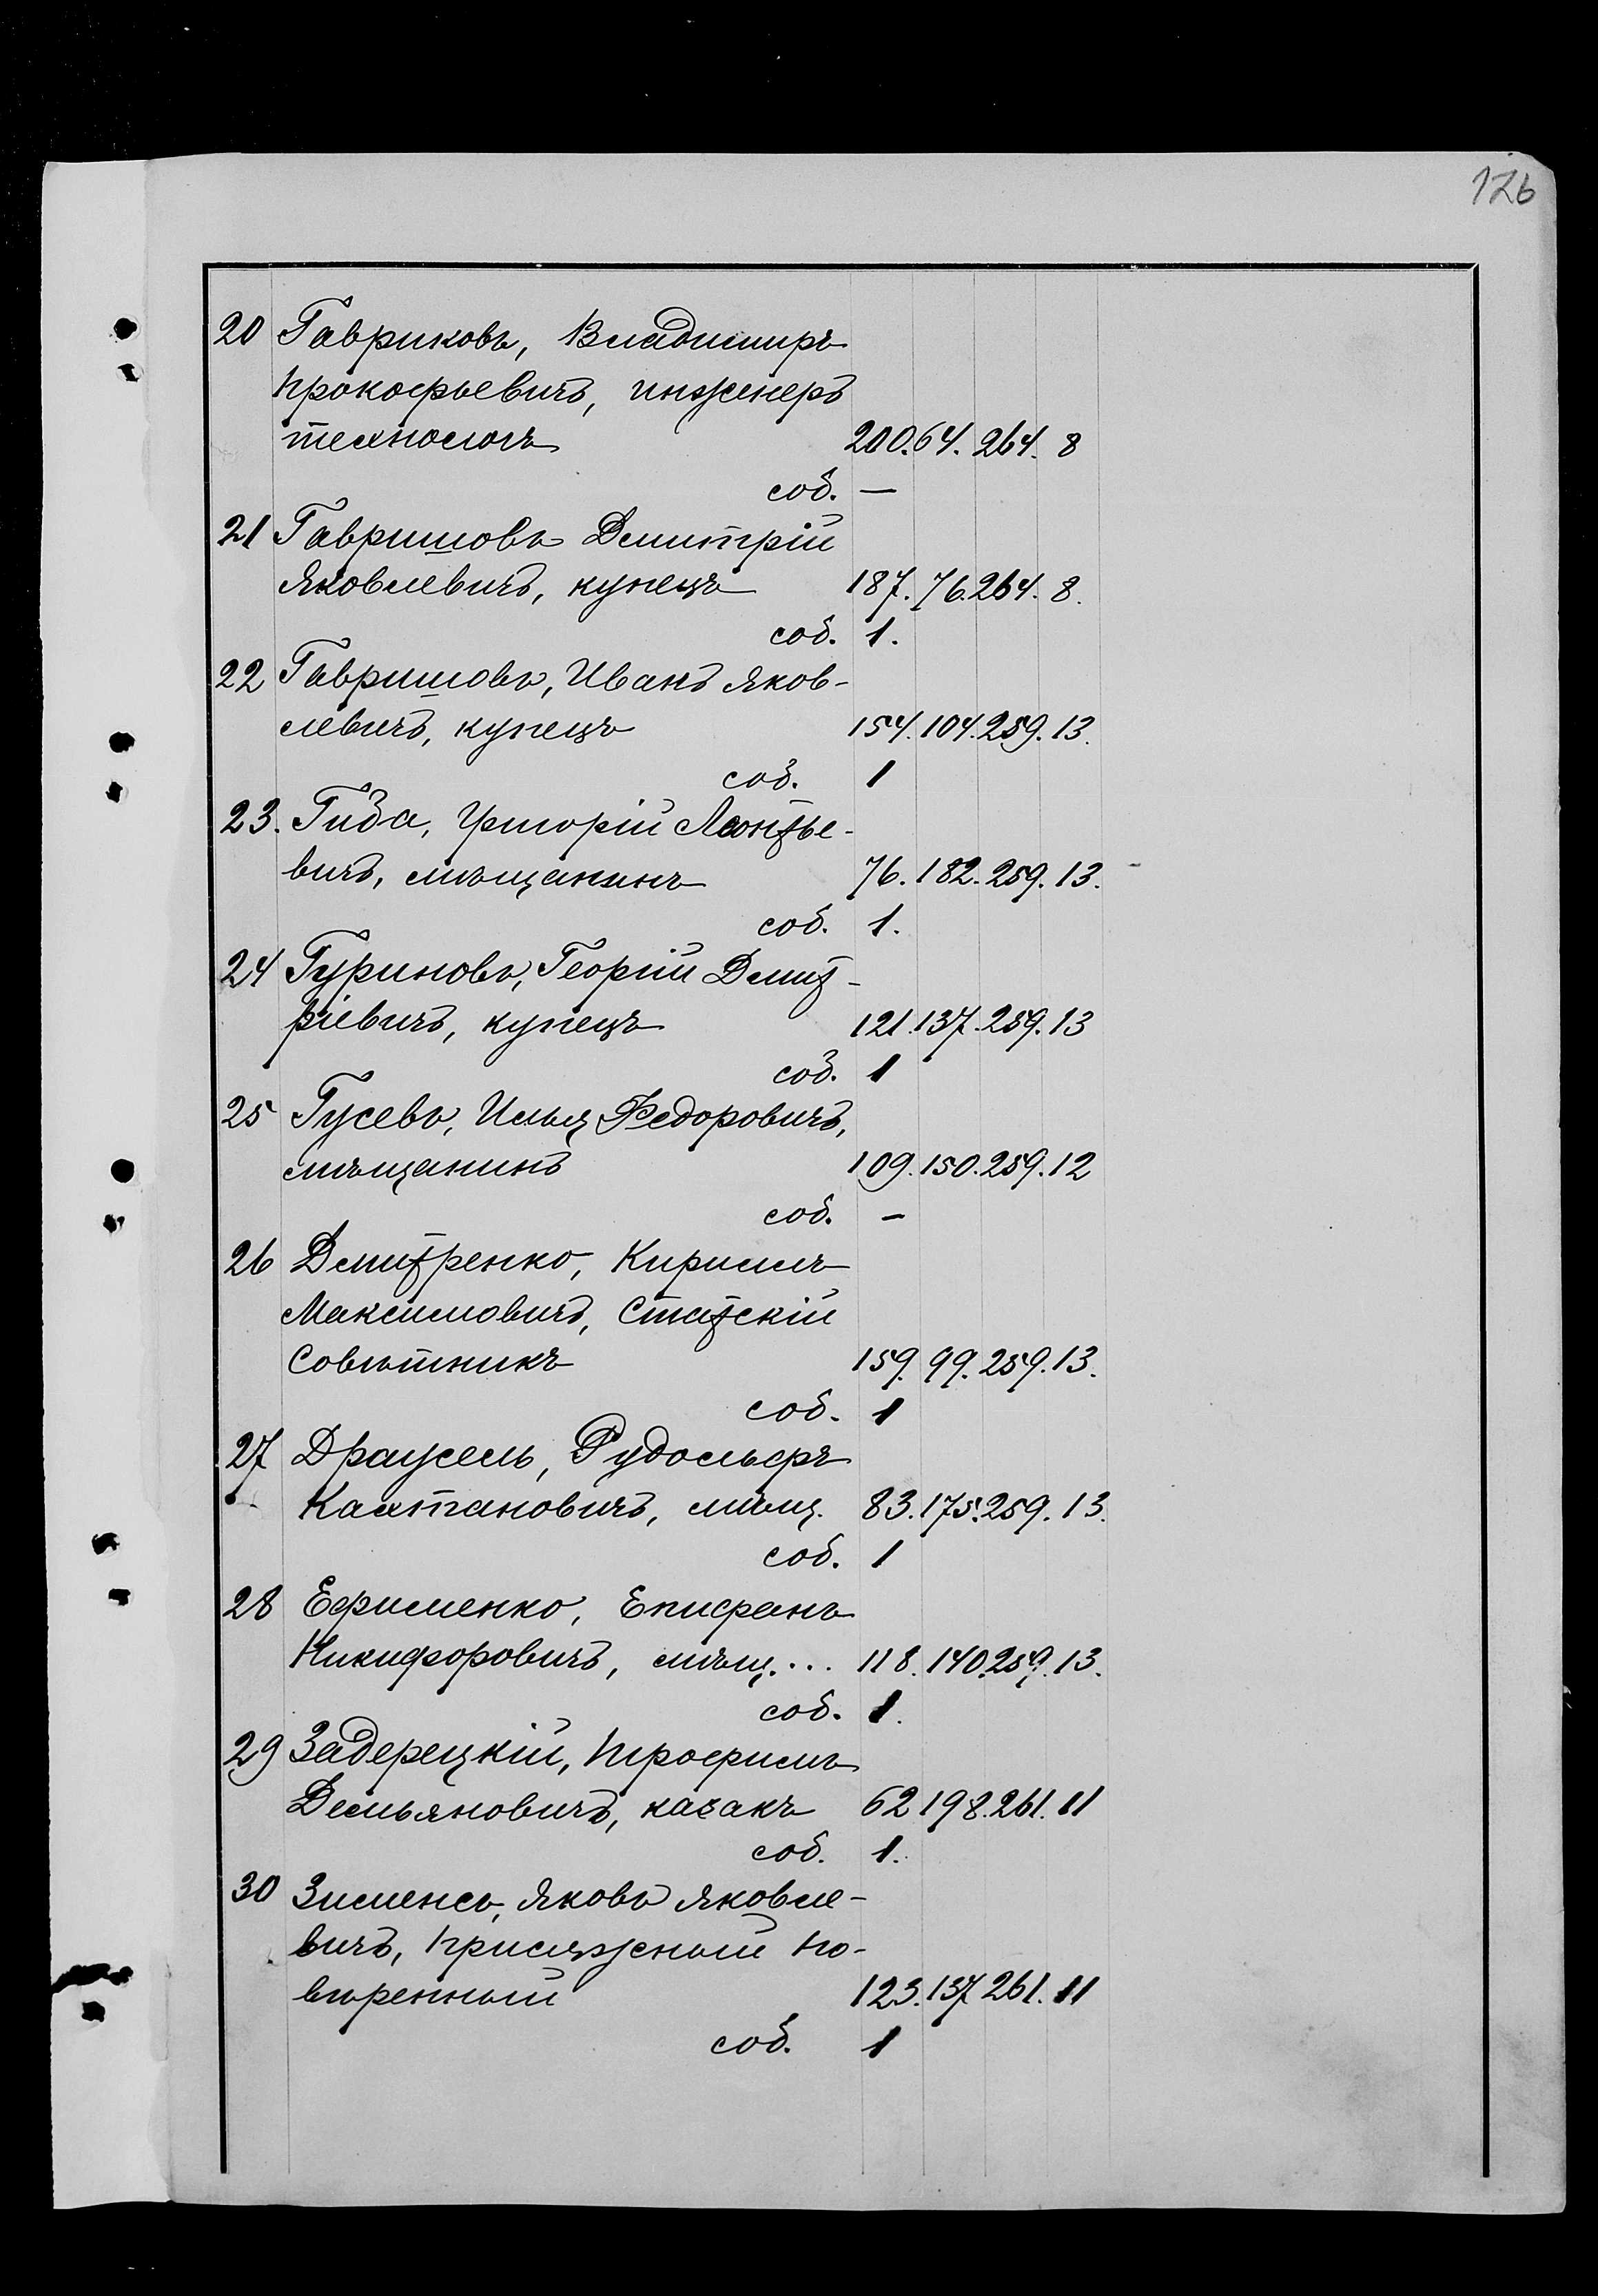 126
20 Гавриковъ, Владимиръ
Прокофьевичъ, инженеръ
технологъ 200. 64. 264. 8
соб. —
21 Гавришовъ Дмитрій
Яковлевичъ, купецъ 187. 76. 264. 8.
соб. 1.
22 Гавришовъ, Иванъ Яков-
левичъ, купецъ 154. 104. 259. 13.
соб. 1
23. Гида, Григорій Леонтье-
вичъ, мѣщанинъ 76. 182. 259. 13.
соб. 1.
24 Гуриновъ, Георгій Дмит-
ріевичъ, купецъ 121. 137. 259. 13
соб. 1
25 Гусевъ, Илья Федоровичъ,
мѣщанинъ 109. 150. 259. 12
соб. —
26 Дмитренко, Кириллъ
Максимовичъ, Статскій
Совѣтникъ 159. 99. 259. 13.
соб. 1
27 Драусель, Рудольфъ
Каэтановичъ, мѣщ. 83. 175. 259. 13.
соб. 1
28 Ефименко, Епифанъ
Никифоровичъ, мѣщ... 118. 140. 259. 13.
соб. 1.
29 Задерецкій, Трофимъ
Демьяновичъ, казакъ 62 198. 261. 11
соб. 1.
30 Зименсъ, Яковъ Яковле-
вичъ, Присяжный По-
вѣренный 123. 137 261. 11
соб. 1